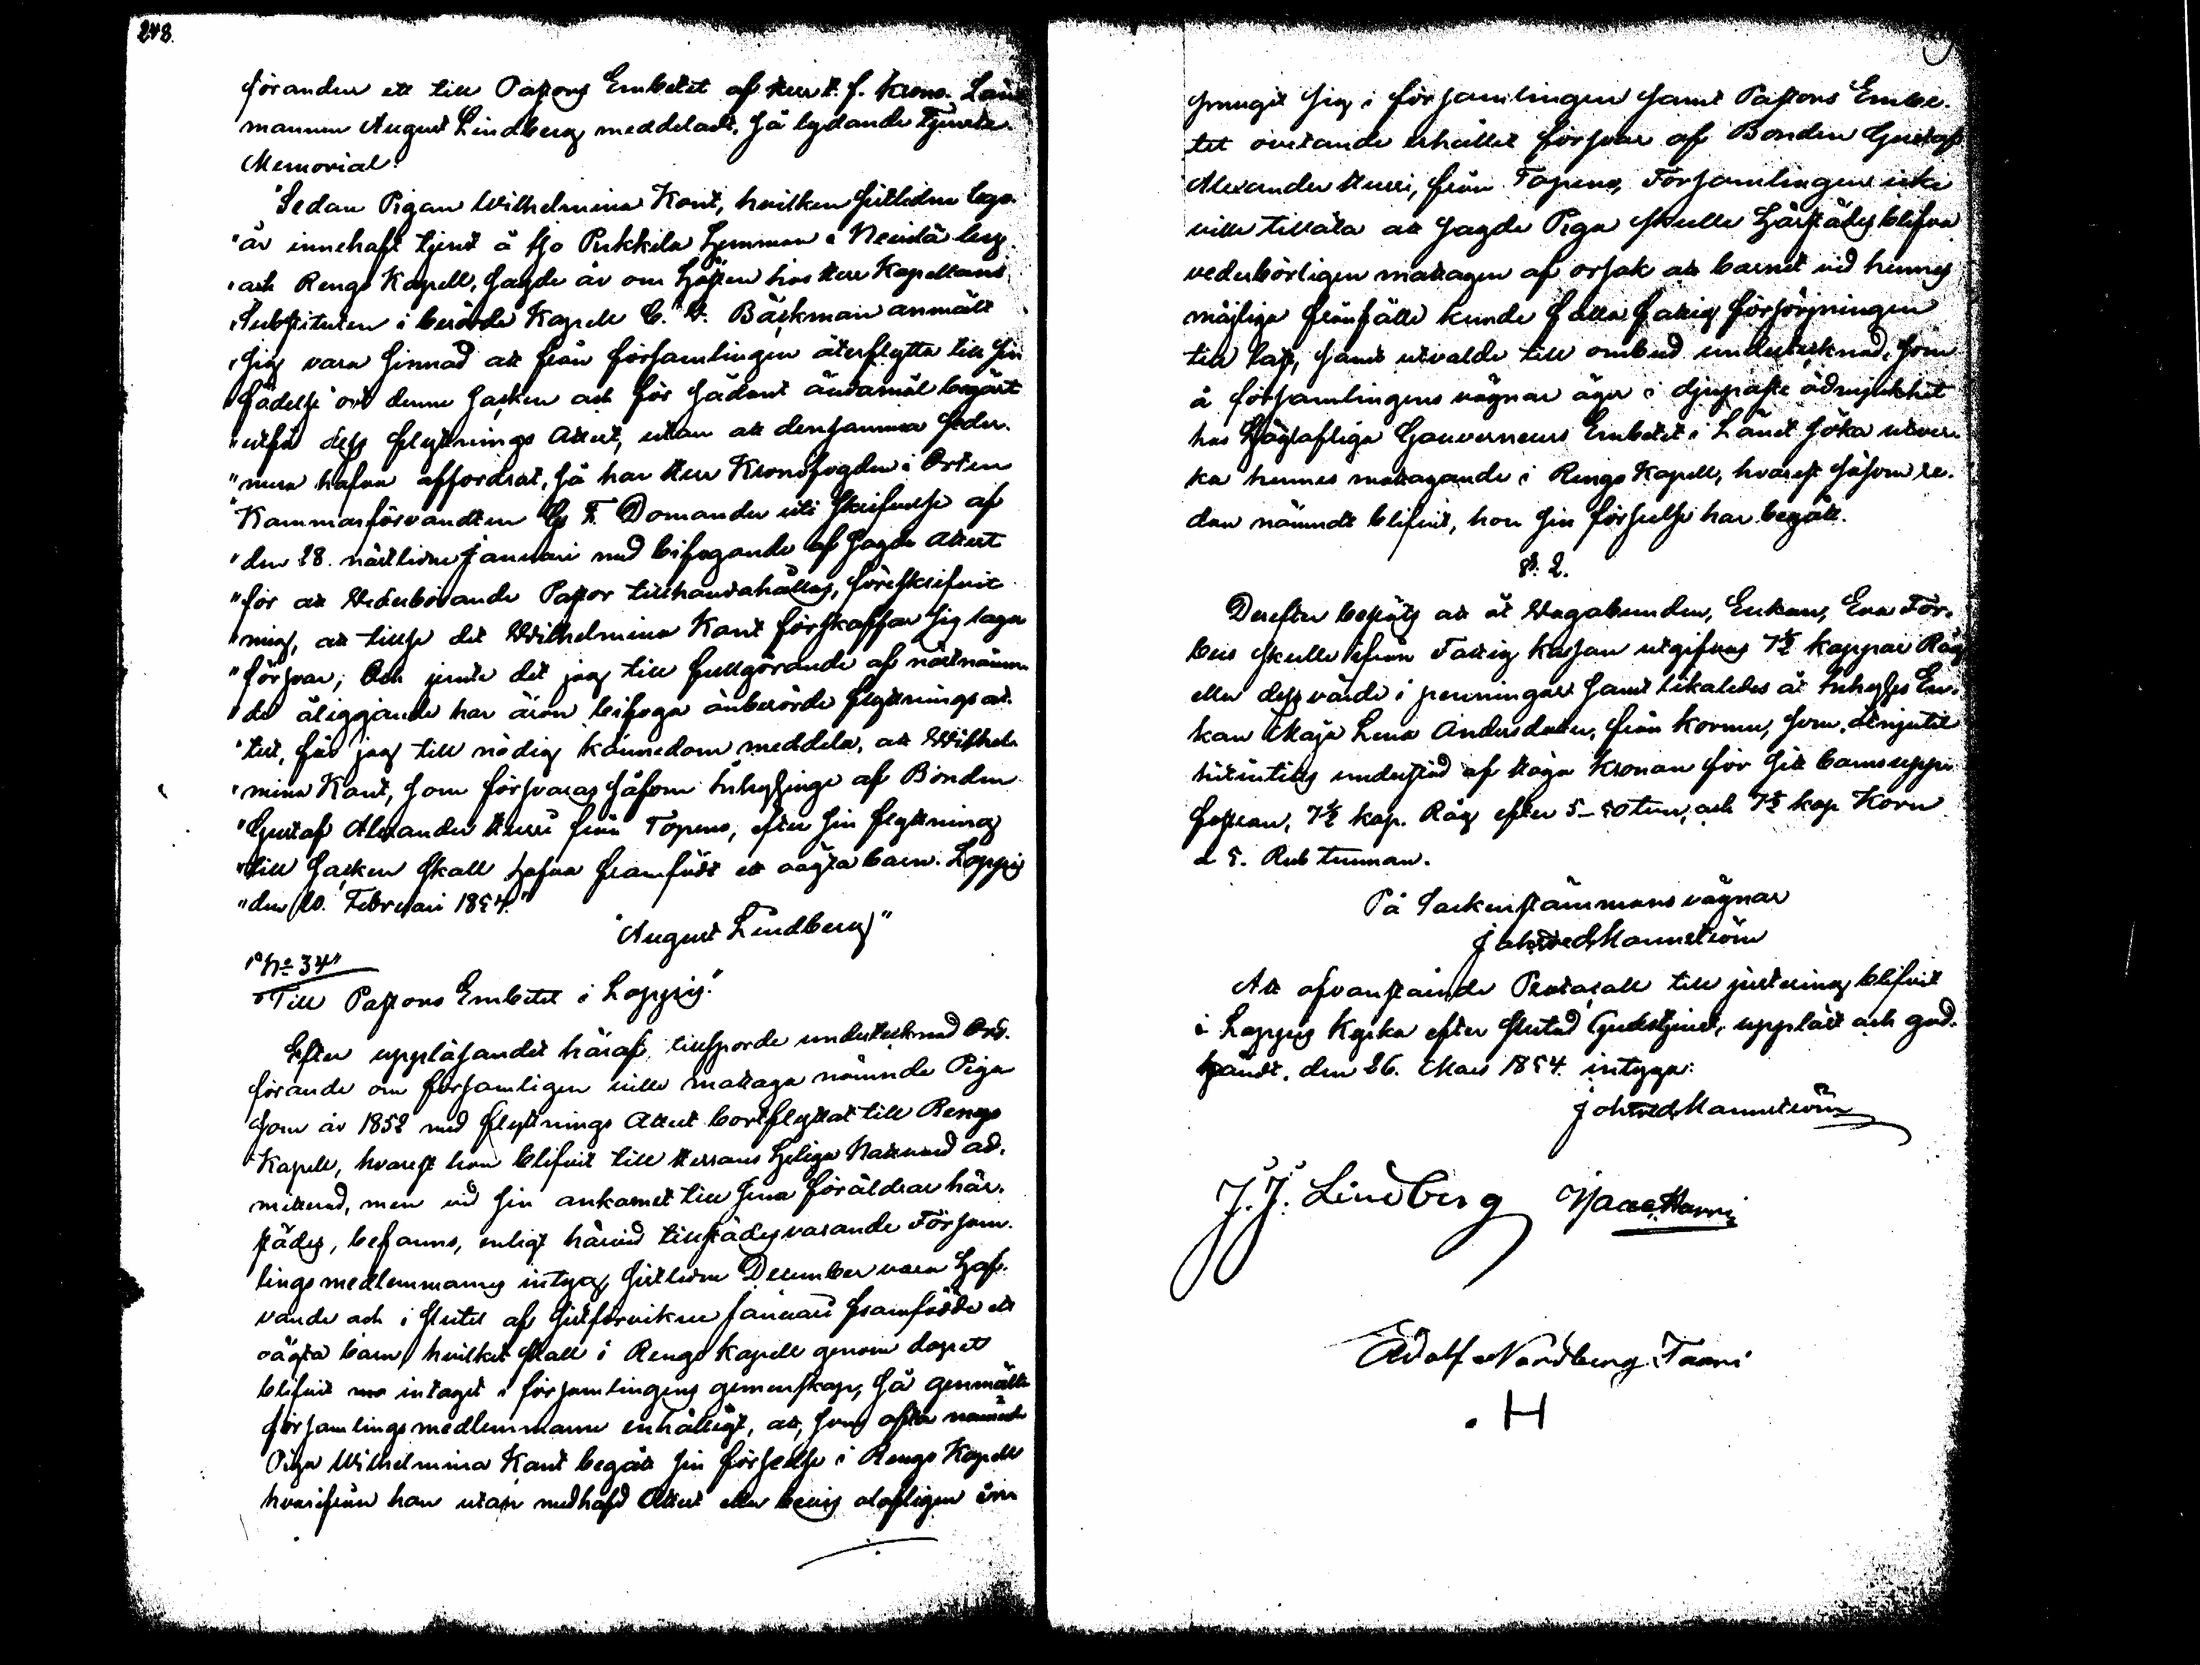 248.
föranden ett till Pastors Embetet af Herr t. f. Krono Läns
mannen August Lindberg meddeladt, så lydande Tjenste
Memorial:
"Sedan Pigan Wilhelmina Kant, hvilken sistledne lego-
"år innehaft tjenst å Pukkila hemman i
"och Rengo Kapell, sagde år om hösten hos Herr Kapellans
"Substituten i berörde Kapell C. G. Bäckman anmält
"sig vara sinnad att från församlingen återflytta till sin
"födelse ort denne Socken och för sådant ändamål begärt
"utfå dess flyttnings Attest, utan att densamma seder-
"mera hafva affordrat, så har Herr Kronofogden i Orten
"Kammarförvandten G. F. Domander uti skrifvelse af
"den 28. nästledne Januari med bifogande af sagde Attest
"för att Vederbörande Pastor tillhandahållas, föreskrifvit
"mig, att tillse det Wilhelmina Kant förskaffar sig laga
"försvar; Och jemte det jag till fullgörande af nästnämn-
"de åliggande har äran bifoga ånberörde flyttningsat-
"test, får jag till nödig kännedom meddela, att Wilhel-
"mina Kant, som försvaras såsom Inhysinge af Bonden
"Gustaf Alexander Heusi från Topeno, efter sin flyttning
"till Socken skall hafva framfödt ett oägta barn. Loppis
"den 20. Februari 1854."
"August Lindberg"
"No 34"
"Till Pastors Embetet i Loppis."
Efter uppläsandet häraf, tillsporde undertecknad Ord-
förande om församlingen ville mottaga nämnde Piga
som år 1852 med flyttnings Attest bortflyttat till Rengo
Kapell, hvarest hon blifvit till Herrans Heliga Nattvard ad-
mitterad, men vid sin ankomst till sina föräldrar här-
städes, befanns, enligt härvid tillstädesvarande Försam-
lingsmedlemmarnes intyg, sistledne December vara haf-
vande och i slutet af sistförvikne Januari framfödde ett
oägta barn, hvilket skall i Rengo kapell genom dopet
blifvit intaget i församlingens gemenskap, så genmälte
församlingsmedlemmarne enhälligt, att, som ofta nämnde
Piga Wilhelmina Kant begått sin förseelse i Rengo Kapell
hvarifrån hon utan medhafd Attest eller bevis olofligen in-
smugit sig i församlingen samt Pastors Embe-
tet ovetande erhållit försvar af Bonden Gustaf
Alexander Heusi, från Topeno, Församlingen icke
ville tillåta att sagde Piga skulle härstädes blifva
vederbörligen mottagen af orsak att barnet vid hennes
möjliga frånfälle kunde falla fattig försörjningen
till last, samt utvalde till ombud undertecknad, som
å församlingens vägnar äger i djupaste ödmjukhet
hos Höglofliga Gouverneurs Embetet i Länet söka utver-
ka hennes mottagande i Rengo Kapell, hvarest såsom re-
dan nämndt blifvit, hon sin förseelse har begått.
§. 2.
Derefter beslöts att åt Vagabunden, Enkan, Eva For-
beis skulle ifrån Fattig kassan utgifvas 7½ kappar Råg
eller dess värde i penningar samt likaledes åt Inhyses En-
kan Maja Lena Andersdotter, från Kormu, som åtnjutit
hitintills understöd af Höga Kronan för sitt barns upp-
fostran, 7½ kap. Råg efter 5-50 tun, och 7½ kap Korn
a 5. Rub tunnan.
På Sockenstämmans vägnar
Joh Fred Mannström
Att ofvanstående Protocoll till justering blifvit
i Loppis Kyrka efter slutad Gudstjenst, uppläst och god-
kändt, den 26. Mars 1854. intyga:
Joh Fred Mannström
J. J. Lindberg
Adolf Nordberg Taari
H